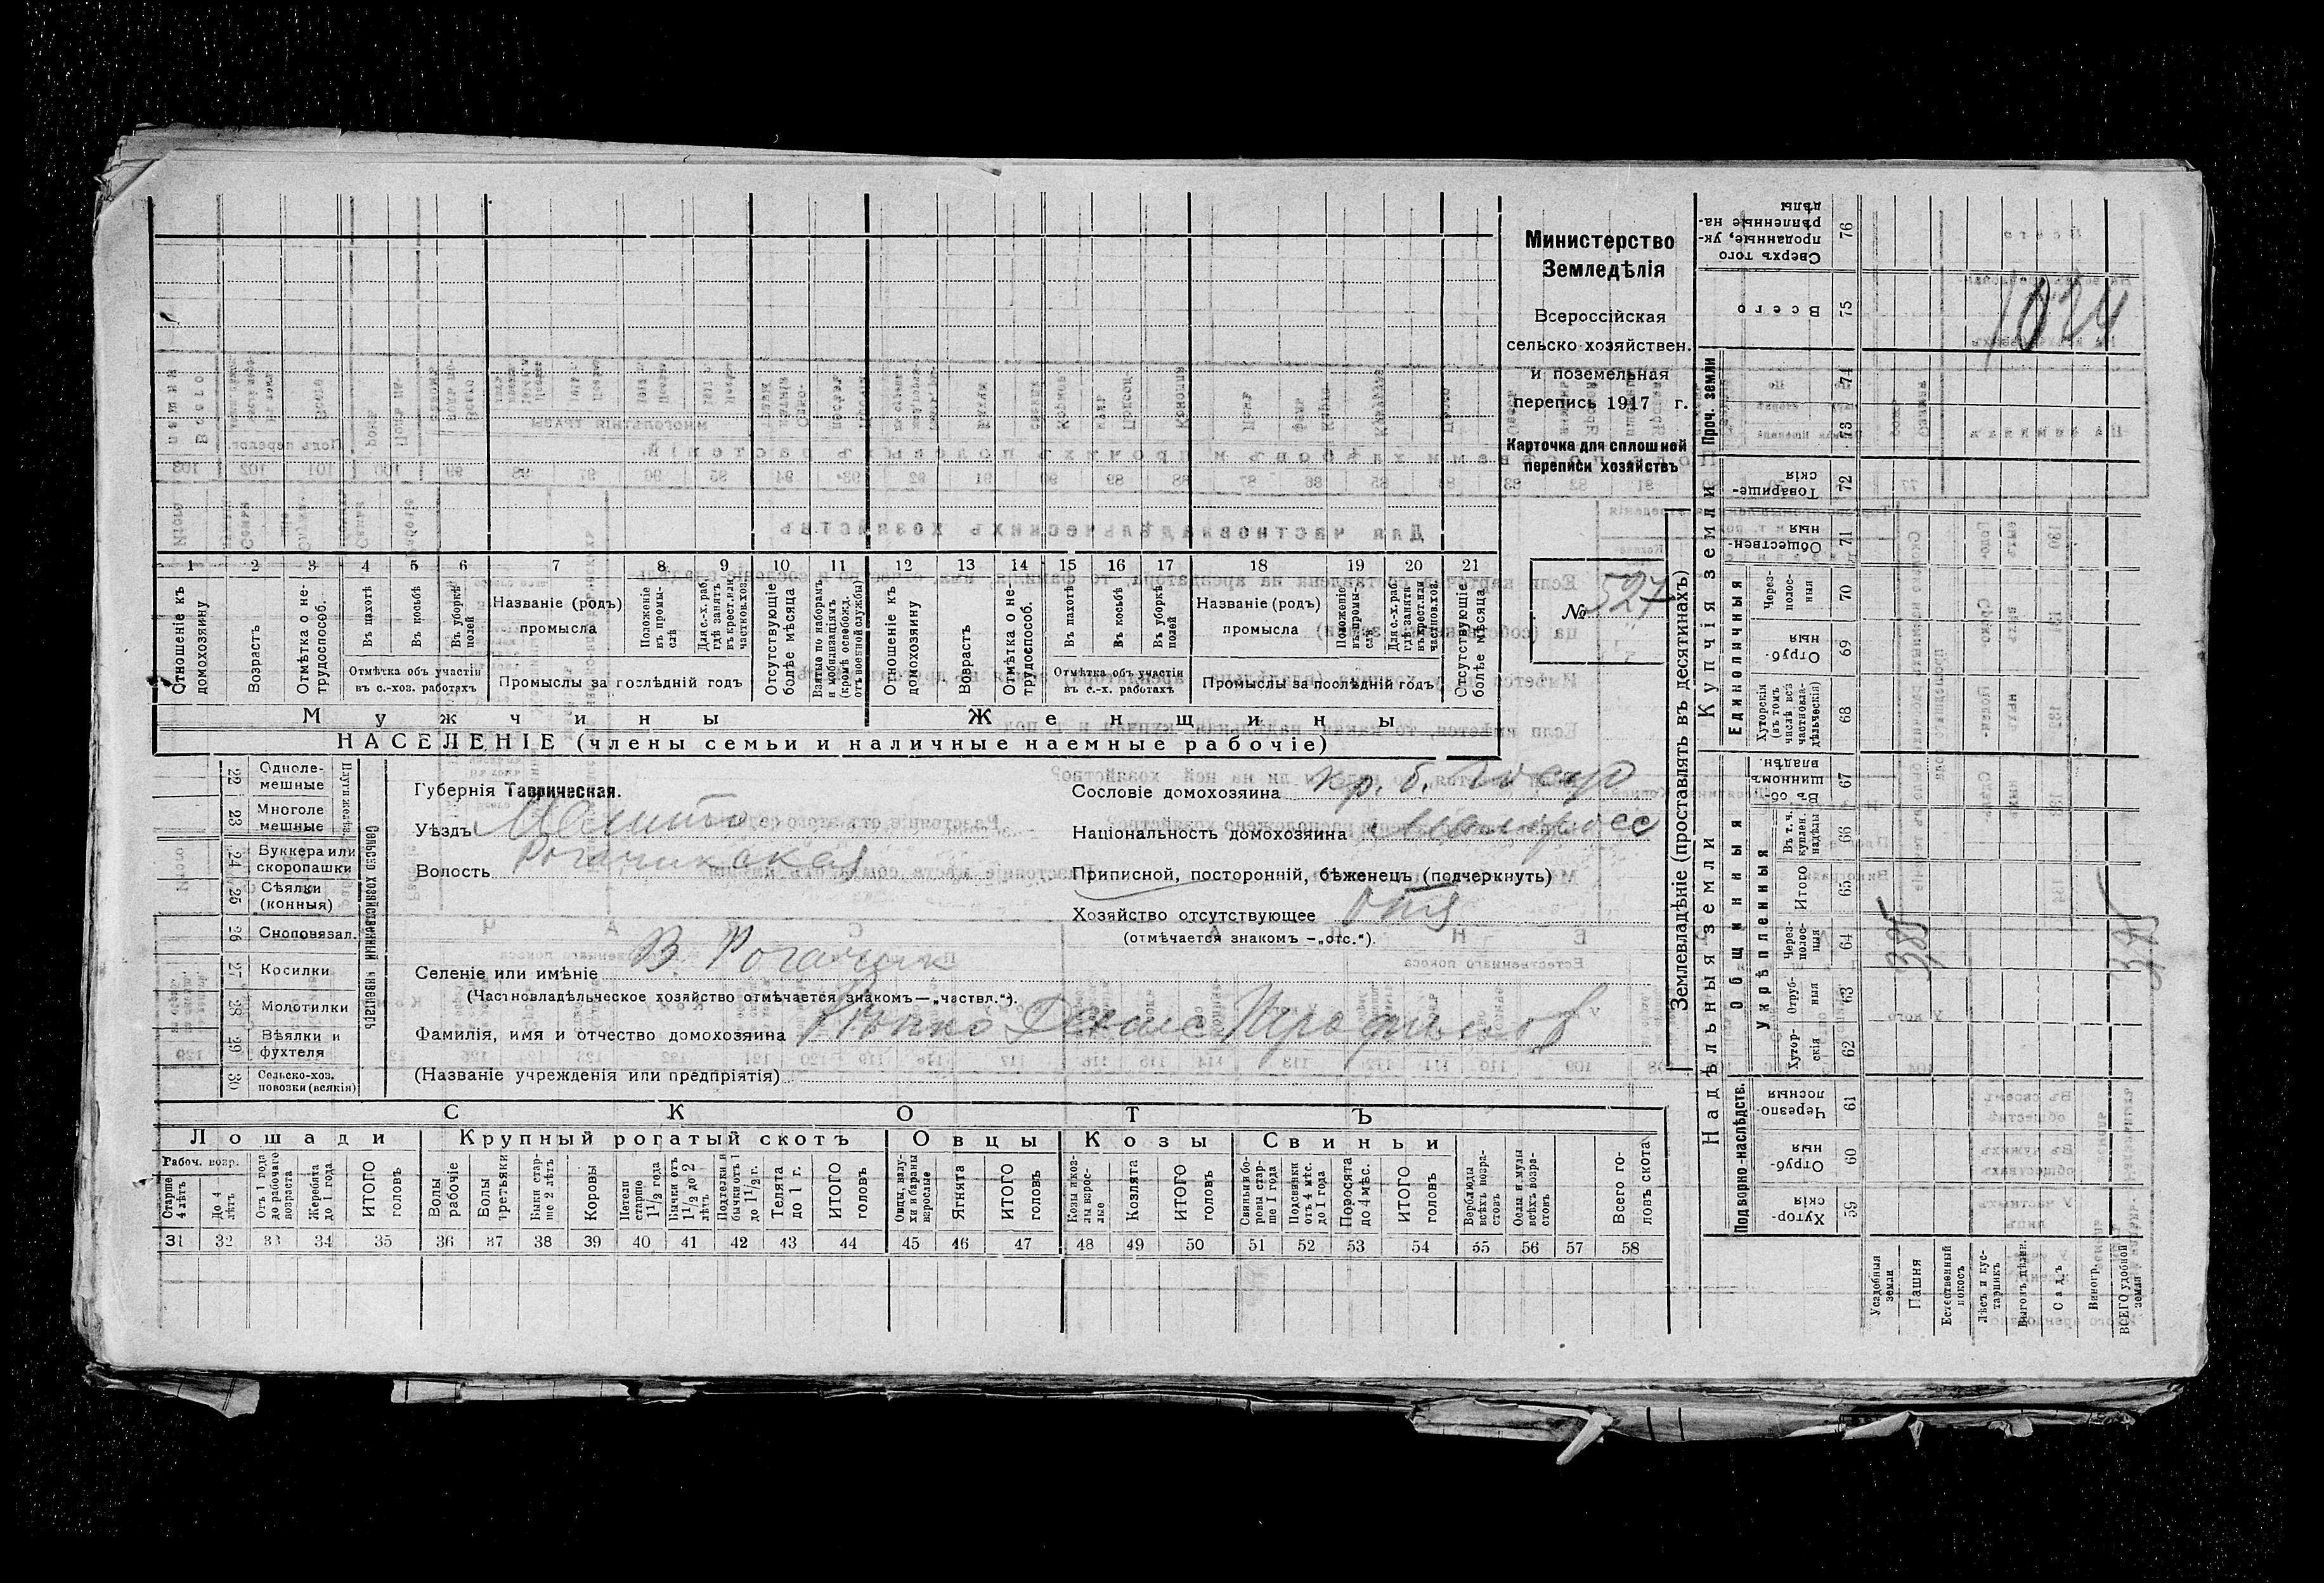 Министерство
Земледѣлія
Всероссійская
сельско-хозяйствен.
и поземельная
перепись 1917 г.
Карточка для сплошной
переписи хозяйствъ
№ 527
1024
1 2 3 4 5 6 7 8 9 10 11 12 13 14 15 16 17 18 19 20 21
Отношеніе къ домохозяину
Возрастъ
Отмѣтка о не-трудоспособ.
Въ пахотѣ
Въ косьбѣ
Въ уборкѣ полей
Отмѣтка объ участіи
въ с.-хоз. работахъ
Названіе (родъ)
промысла
Положеніе въ промы-слѣ
Для с.-х. раб. гдѣ занятъ въ крест. или частнов. хоз.
Промыслы за послѣдній годъ
Отсутствующіе болѣе мѣсяца
Взятые по наборамъ и мобилизаціямъ (кромѣ освобожд. отъ военной службы)
Отношеніе къ домохозяину
Возрастъ
Отмѣтка о не-трудоспособ.
Въ пахотѣ
Въ косьбѣ
Въ уборкѣ полей
Отмѣтка объ участіи
въ с.-х. работахъ
Названіе (родъ)
промысла
Положеніе въ промы-слѣ
Для с.-х. раб. гдѣ занята въ крест. или частнов. хоз.
Промыслы за послѣдній годъ
Отсутствующіе болѣе мѣсяца
Мужчины
Женщины
НАСЕЛЕНІЕ (члены семьи и наличные наемные рабочіе)
Сельско-хозяйственный инвентарь
22 Одноле-мешные
23 Многоле мешные
24 Буккера или скоропашки
25 Сѣялки (конныя)
26 Сноповязал.
27 Косилки
28 Молотилки
29 Вѣялки и фухтеля
30 Сельско-хоз. повозки (всякія)
Губернія Таврическая.
Уѣздъ
Волость Рогачикская
Селеніе или имѣніе В. Рогачик
(Частновладѣльческое хозяйство отмѣчается знакомъ—„частвл.“).
Фамилія, имя и отчество домохозяина
(Названіе учрежденія или предпріятія)
Сословіе домохозяина кр. б. госуд
Національность домохозяина малоросс
Приписной, посторонній, бѣженецъ (подчеркнуть)
Хозяйство отсутствующее
(отмѣчается знакомъ —„отс.“).
СКОТЪ
Лошади
Крупный рогатый скотъ
Овцы
Козы
Свиньи
Рабоч. возр.
Старше 4 лѣтъ
До 4 лѣтъ
Отъ 1 года до рабочаго возраста
Жеребята до 1 года
ИТОГО головъ
Волы рабочіе
Волы третьяки
Быки стар-ше 2 лѣтъ
Коровы
Нетели старше 1½ года
Бычки отъ 1½ до 2 лѣтъ
Подтелки и бычки отъ 1 до 1½ г.
Телята до 1 г.
ИТОГО головъ
Овцы, валу-хи и бараны взрослые
Ягнята
ИТОГО головъ
Козы и коз-лы взрос-лые
Козлята
ИТОГО головъ
Свиньи и бо-ровы стар-ше 1 года
Подсвинки отъ 4 мѣс. до 1 года
Поросята до 4 мѣс.
ИТОГО головъ
Верблюды всѣхъ возра-стовъ
Ослы и мулы всѣхъ возра-стовъ
Всего го-ловъ скота
31 32 33 34 35 36 37 38 39 40 41 42 43 44 45 46 47 48 49 50 51 52 53 54 55 56 57 58
Землевладѣніе (проставлять въ десятинахъ)
Купчія земли
Надѣльныя земли
Проч. земли
Единоличныя
Общинныя
Укрѣпленныя
Подворно-наслѣдств.
Сверхъ того проданные, ук-рѣпленные на-дѣлы 76
Всего 75
74
73
Товарище-скія 72
Обществен-ныя 71
Через-полос-ныя 70
Отруб-ныя 69
Хуторскія (въ томъ числѣ всѣ частновла-дѣльческія) 68
Въ об-щинномъ владѣн. 67
Въ т. ч. куплен. надѣлы 66
Итого 65
Через-полос-ныя 64
Отруб-ныя 63
Хутор-скія 62
Черезпо-лосныя 61
Отруб-ныя 60
Хутор-скія 59
Усадебныя земли
Пашня
Естественный покосъ
Лѣсъ и кус-тарникъ
Выгонъ дѣлен.
Садъ
Виногр.
ВСЕГО удобной земли